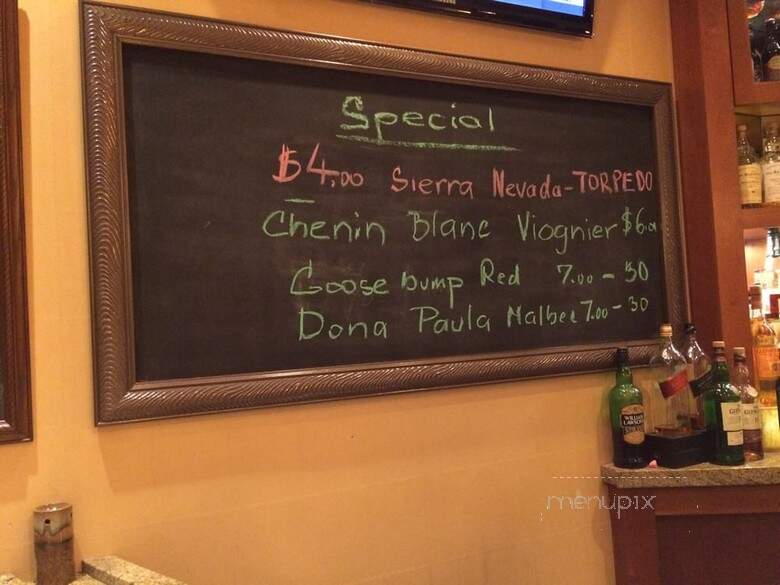 Special
$4.00 Sierra Nevada-TORPEDO
Chenin Blanc Viognier $6.0
Goose bump Red 7.00 - 30
Dona Paula Malbec 7.00 - 30
WILLIAM
LAWSON'S
menupix